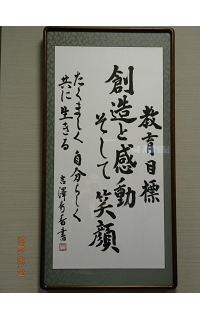 教育目標
創造と感動
そして笑顔
たくましく自分らしく
共に生きる